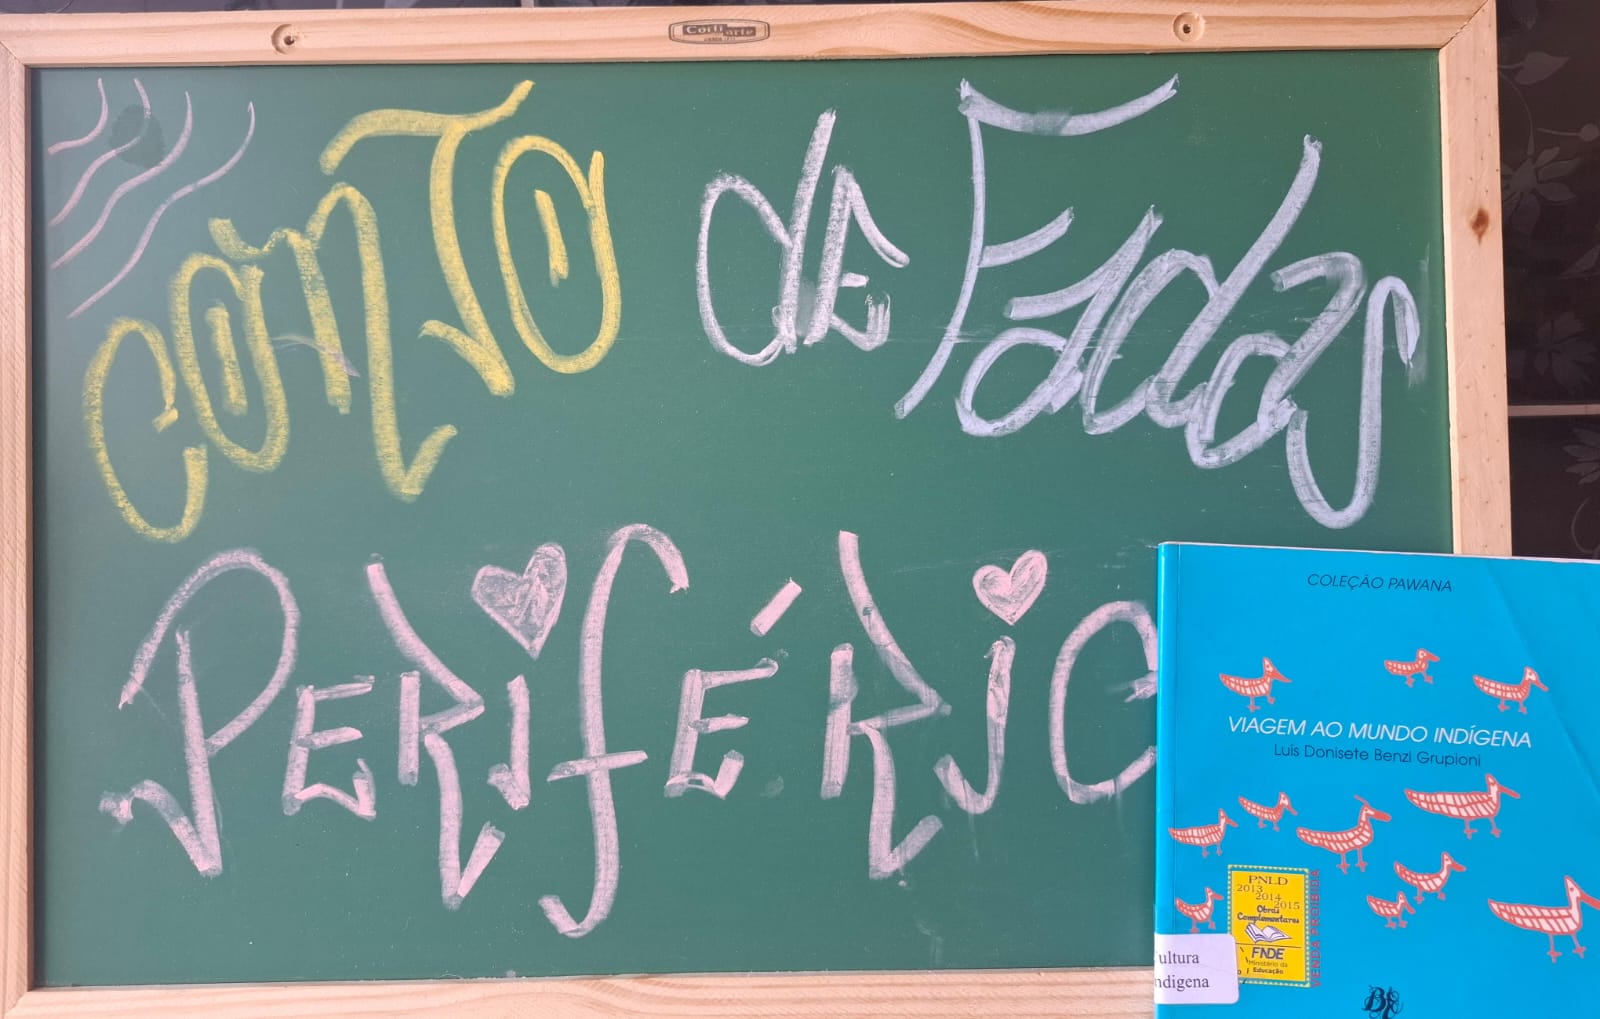 Cortiarte
CONTO de Fadas
PERIFÉRIC
COLEÇÃO PAWANA
VIAGEM AO MUNDO INDÍGENA
Luís Donisete Benzi Grupioni
PNLD
2013
2014
2015
Obras
Complementares
FNDE
Ministério da
Educação
VENDA PROIBIDA
ultura
ndigena